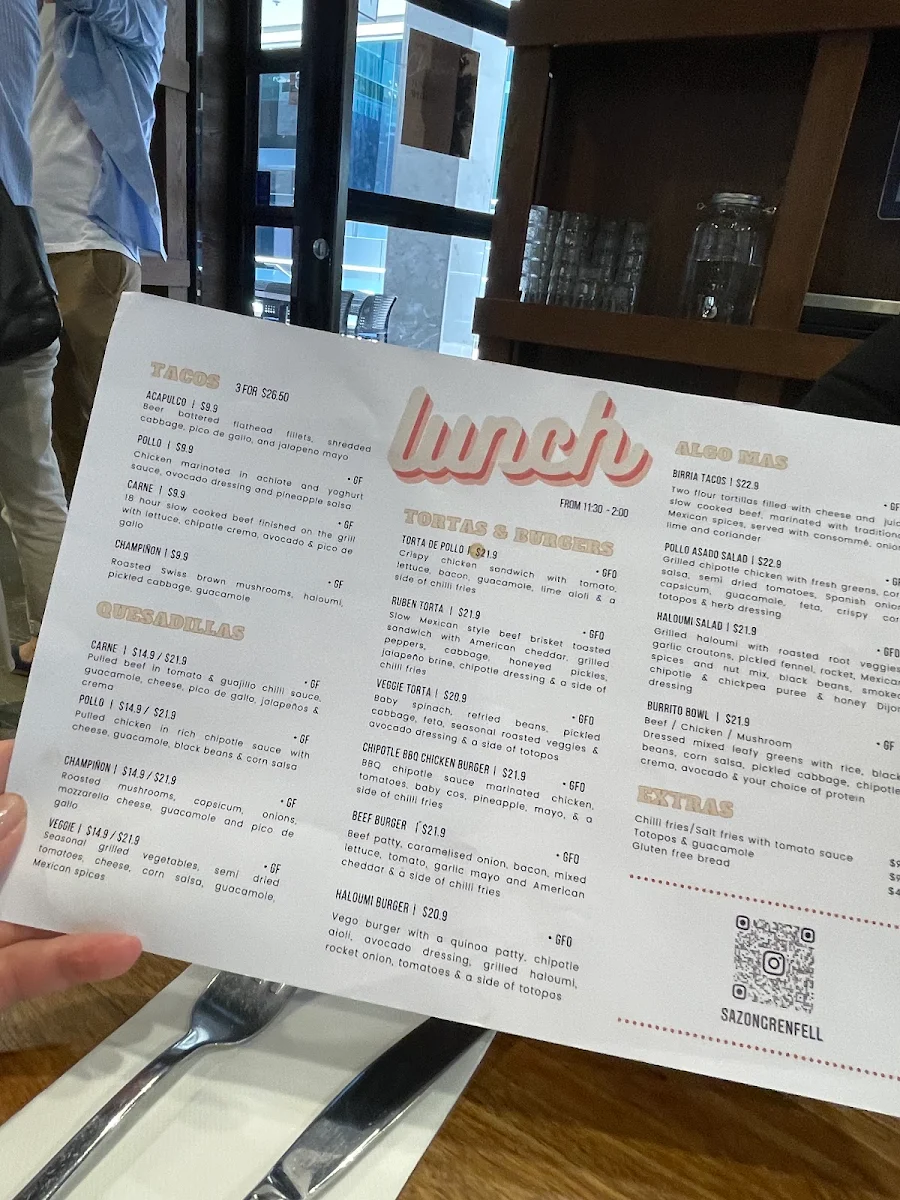 TACOS 3 FOR $26.50
ACAPULCO | $9.9
Beer battered flathead fillets, shredded
cabbage, pico de gallo, and jalapeno mayo
POLLO | $9.9
• GF
Chicken marinated in achiote and yoghurt
sauce, avocado dressing and pineapple salsa
CARNE | $9.9
• GF
18 hour slow cooked beef finished on the grill
with lettuce, chipotle crema, avocado & pico de
gallo
CHAMPIÑON | $9.9
• GF
Roasted Swiss brown mushrooms, haloumi,
pickled cabbage, guacamole
QUESADILLAS
CARNE | $14.9 / $21.9
• GF
Pulled beef in tomato & guajillo chilli sauce,
guacamole, cheese, pico de gallo, jalapeños &
crema
POLLO | $14.9 / $21.9
• GF
Pulled chicken in rich chipotle sauce with
cheese, guacamole, black beans & corn salsa
CHAMPIÑON | $14.9 / $21.9
• GF
Roasted mushrooms, capsicum, onions,
mozzarella cheese, guacamole and pico de
gallo
VEGGIE | $14.9 / $21.9
• GF
Seasonal grilled vegetables, semi dried
tomatoes, cheese, corn salsa, guacamole,
Mexican spices
lunch
FROM 11:30 - 2:00
TORTAS & BURGERS
TORTA DE POLLO | $21.9
• GFO
Crispy chicken sandwich with tomato,
lettuce, bacon, guacamole, lime aioli & a
side of chilli fries
RUBEN TORTA | $21.9
• GFO
Slow Mexican style beef brisket toasted
sandwich with American cheddar, grilled
peppers, cabbage, honeyed pickles,
jalapeño brine, chipotle dressing & a side of
chilli fries
VEGGIE TORTA | $20.9
• GFO
Baby spinach, refried beans, pickled
cabbage, feta, seasonal roasted veggies &
avocado dressing & a side of totopos
CHIPOTLE BBQ CHICKEN BURGER | $21.9
• GFO
BBQ chipotle sauce marinated chicken,
tomatoes, baby cos, pineapple, mayo, & a
side of chilli fries
BEEF BURGER | $21.9
• GFO
Beef patty, caramelised onion, bacon, mixed
lettuce, tomato, garlic mayo and American
cheddar & a side of chilli fries
HALOUMI BURGER | $20.9
• GFO
Vego burger with a quinoa patty, chipotle
aioli, avocado dressing, grilled haloumi,
rocket onion, tomatoes & a side of totopos
ALGO MAS
BIRRIA TACOS | $22.9
• GF
Two flour tortillas filled with cheese and juic
slow cooked beef, marinated with traditiona
Mexican spices, served with consommé, onion
lime and coriander
POLLO ASADO SALAD | $22.9
• GF
Grilled chipotle chicken with fresh greens, cor
salsa, semi dried tomatoes, Spanish onion
capsicum, guacamole, feta, crispy cor
totopos & herb dressing
HALOUMI SALAD | $21.9
• GFO
Grilled haloumi with roasted root veggies
garlic croutons, pickled fennel, rocket, Mexican
spices and nut mix, black beans, smoked
chipotle & chickpea puree & honey Dijon
dressing
BURRITO BOWL | $21.9
• GF
Beef / Chicken / Mushroom
Dressed mixed leafy greens with rice, black
beans, corn salsa, pickled cabbage, chipotle
crema, avocado & your choice of protein
EXTRAS
Chilli fries/Salt fries with tomato sauce $9
Totopos & guacamole $9
Gluten free bread $4
SAZONGRENFELL